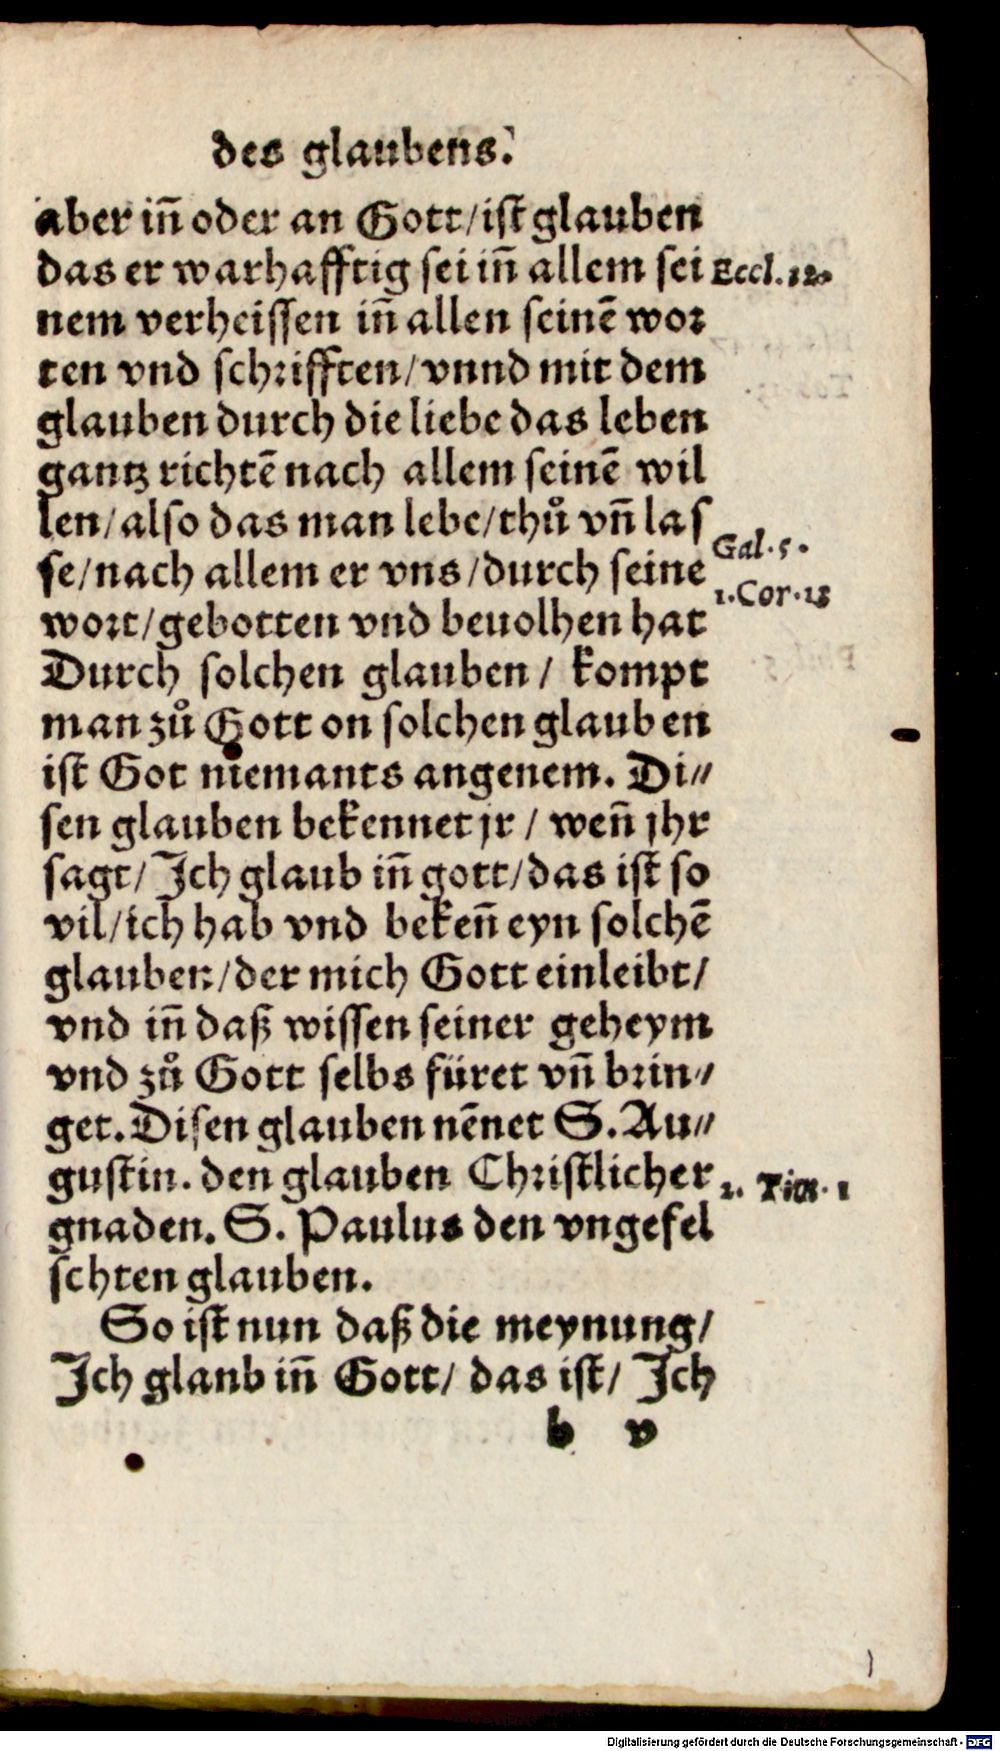 des glaubens.
aber iñ oder an Gott/ist glauben
das er warhafftig sei iñ allem sei
Eccl. 12.
nem verheissen iñ allen seinē wor
ten vnd schrifften/vnnd mit dem
glauben durch die liebe das leben
gantz richtē nach allem seinē wil
len/also das man lebe/thů vñ las
Gal. 5.
se/nach allem er vns/durch seine
1. Cor. 13
wort/gebotten vnd beuolhen hat
Durch solchen glauben/ kompt
man zů Gott on solchen glauben
ist Got niemants angenem. Di⸗
sen glauben bekennet jr / weñ jhr
sagt/ Ich glaub iñ gott/das ist so
vil/ich hab vnd bekeñ eyn solchē
glauben/der mich Gott einleibt/
vnd iñ daß wissen seiner geheym
vnd zů Gott selbs füret vñ brin⸗
get. Disen glauben nēnet S. Au⸗
gustin. den glauben Christlicher
1. Tim. 1
gnaden. S. Paulus den vngefel
schten glauben.
So ist nun daß die meynung/
Ich glanb iñ Gott/ das ist/ Ich
b v
Digitalisierung gefördert durch die Deutsche Forschungsgemeinschaft - DFG